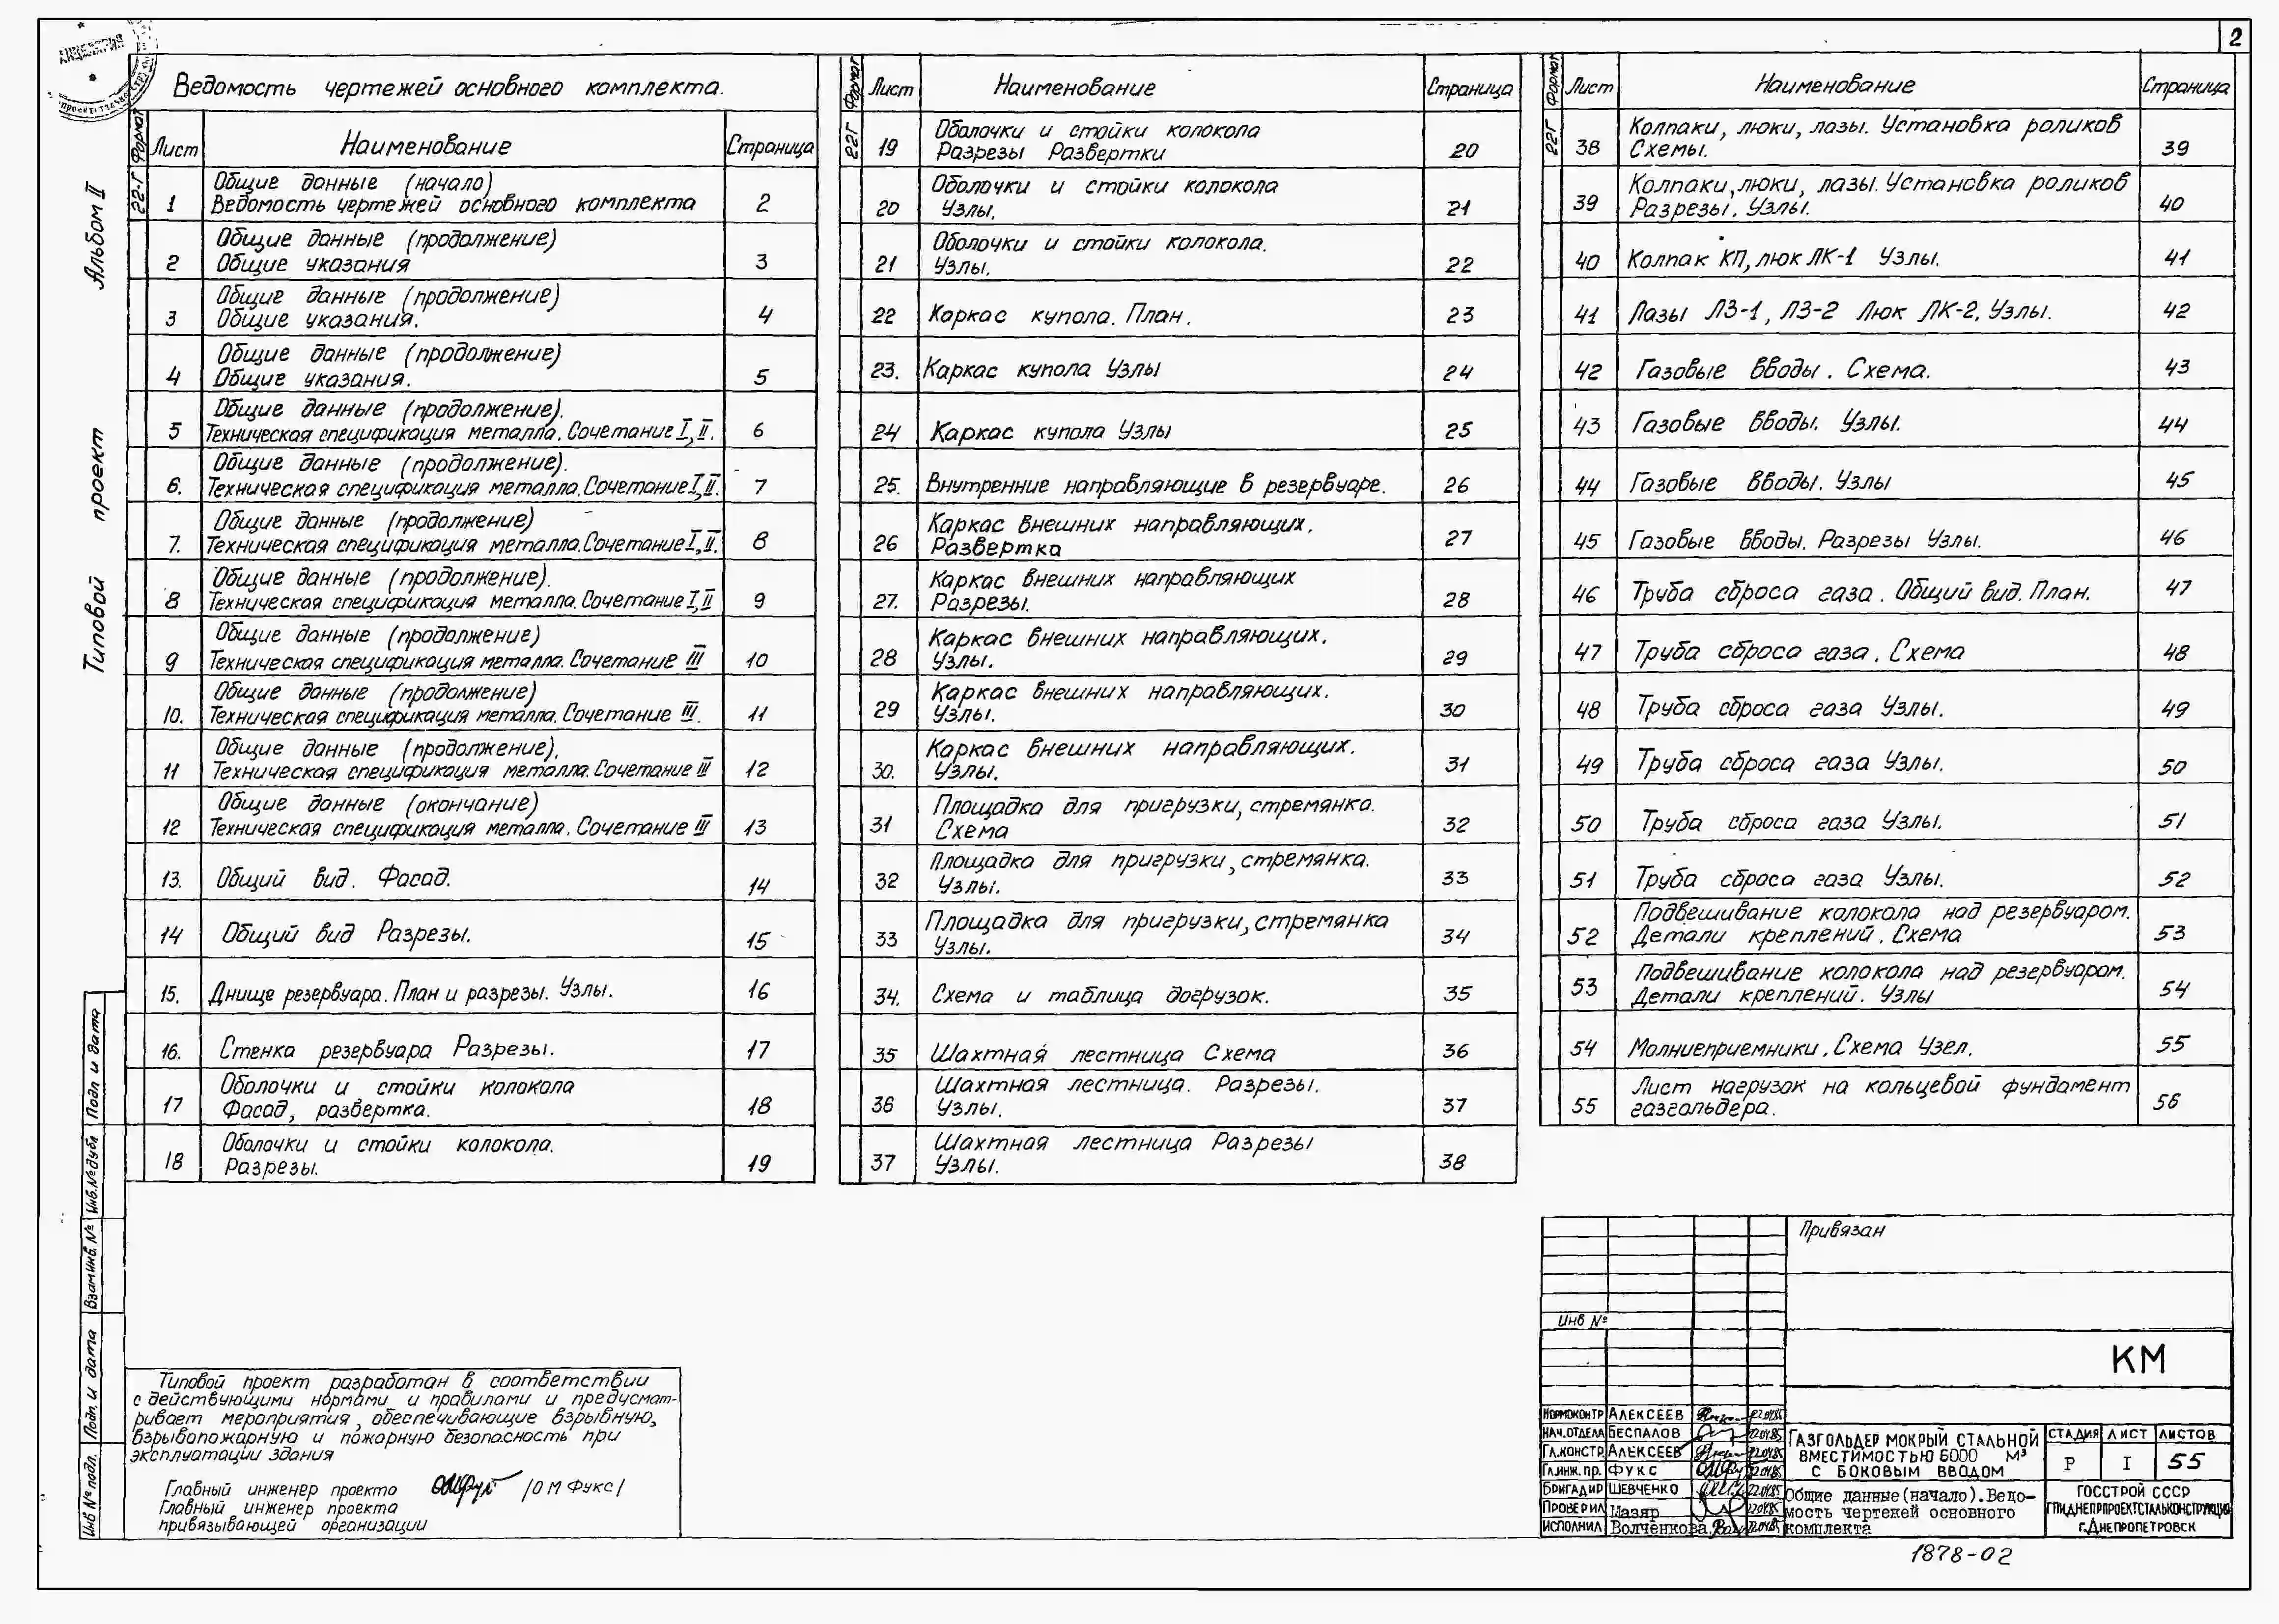 2
Альбом II
Типовой проект
Ведомость чертежей основного комплекта.
Формат Лист Наименование Страница
22-Г 1 Общие данные (начало) Ведомость чертежей основного комплекта 2
2 Общие данные (продолжение) Общие указания 3
3 Общие данные (продолжение) Общие указания. 4
4 Общие данные (продолжение) Общие указания. 5
5 Общие данные (продолжение). Техническая спецификация металла. Сочетание I, II. 6
6. Общие данные (продолжение). Техническая спецификация металла. Сочетание I, II. 7
7. Общие данные (продолжение) Техническая спецификация металла. Сочетание I, II. 8
8 Общие данные (продолжение). Техническая спецификация металла. Сочетание I, II 9
9 Общие данные (продолжение) Техническая спецификация металла. Сочетание III 10
10. Общие данные (продолжение) Техническая спецификация металла. Сочетание III. 11
11 Общие данные (продолжение). Техническая спецификация металла. Сочетание III 12
12 Общие данные (окончание) Техническая спецификация металла. Сочетание III 13
13. Общий вид. Фасад. 14
14 Общий вид Разрезы. 15
15. Днище резервуара. План и разрезы. Узлы. 16
16. Стенка резервуара Разрезы. 17
17 Оболочки и стойки колокола Фасад, развертка. 18
18 Оболочки и стойки колокола. Разрезы. 19
Формат Лист Наименование Страница
22Г 19 Оболочки и стойки колокола Разрезы Развертки 20
20 Оболочки и стойки колокола Узлы. 21
21 Оболочки и стойки колокола. Узлы. 22
22 Каркас купола. План. 23
23. Каркас купола Узлы 24
24 Каркас купола Узлы 25
25. Внутренние направляющие в резервуаре. 26
26 Каркас внешних направляющих. Развертка 27
27. Каркас внешних направляющих Разрезы. 28
28 Каркас внешних направляющих. Узлы. 29
29 Каркас внешних направляющих. Узлы. 30
30. Каркас внешних направляющих. Узлы. 31
31 Площадка для пригрузки, стремянка. Схема 32
32 Площадка для пригрузки, стремянка. Узлы. 33
33 Площадка для пригрузки, стремянка Узлы. 34
34. Схема и таблица догрузок. 35
35 Шахтная лестница Схема 36
36 Шахтная лестница. Разрезы. Узлы. 37
37 Шахтная лестница Разрезы Узлы. 38
Формат Лист Наименование Страница
22Г 38 Колпаки, люки, лазы. Установка роликов Схемы. 39
39 Колпаки, люки, лазы. Установка роликов Разрезы. Узлы. 40
40 Колпак КП, люк ЛК-1 Узлы. 41
41 Лазы ЛЗ-1, ЛЗ-2 Люк ЛК-2. Узлы. 42
42 Газовые вводы. Схема. 43
43 Газовые вводы. Узлы. 44
44 Газовые вводы. Узлы 45
45 Газовые вводы. Разрезы Узлы. 46
46 Труба сброса газа. Общий вид. План. 47
47 Труба сброса газа. Схема 48
48 Труба сброса газа Узлы. 49
49 Труба сброса газа Узлы. 50
50 Труба сброса газа Узлы. 51
51 Труба сброса газа Узлы. 52
52 Подвешивание колокола над резервуаром. Детали креплений. Схема 53
53 Подвешивание колокола над резервуаром. Детали креплений. Узлы 54
54 Молниеприемники. Схема Узел. 55
55 Лист нагрузок на кольцевой фундамент газгольдера. 56
Подп и дата
Инв.№ дубл
Взам инв. №
Подп. и дата
Инв № подл.
Типовой проект разработан в соответствии
с действующими нормами и правилами и предусмат-
ривает мероприятия, обеспечивающие взрывную,
взрывопожарную и пожарную безопасность при
эксплуатации здания
Главный инженер проекта /О М Фукс/
Главный инженер проекта
привязывающей организации
Привязан
Инв №
КМ
Нормоконтр Алексеев 22.04.85
Нач.отдела Беспалов 22.04.85
Гл.констр. Алексеев 22.04.85
Гл.инж.пр. Фукс 22.04.85
Бригадир Шевченко 22.04.85
Проверил Мазяр 22.04.85
Исполнил Волченкова 22.04.85
Газгольдер мокрый стальной
вместимостью 6000 м³
с боковым вводом
Стадия Лист Листов
Р I 55
Общие данные (начало). Ведо-
мость чертежей основного
комплекта
Госстрой СССР
ГПИДнепрпроектстальконструкция
г.Днепропетровск
1878-02